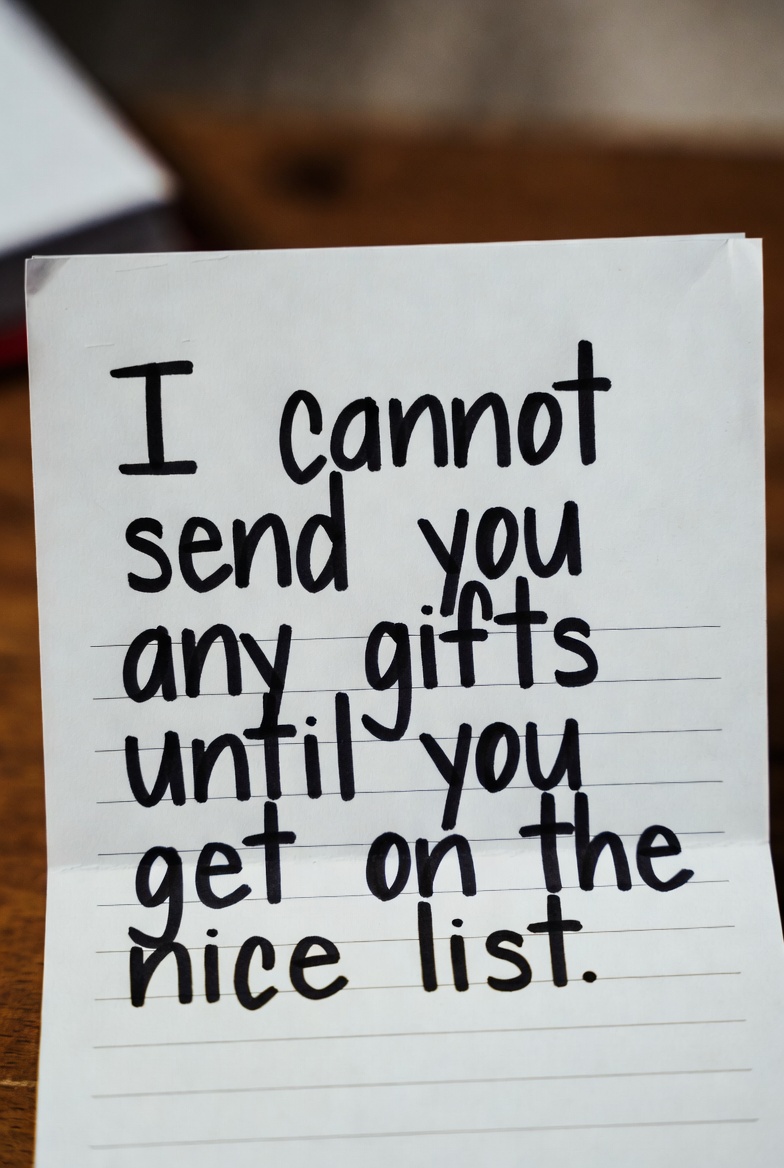 I cannot
send you
any gifts
until you
get on the
nice list.